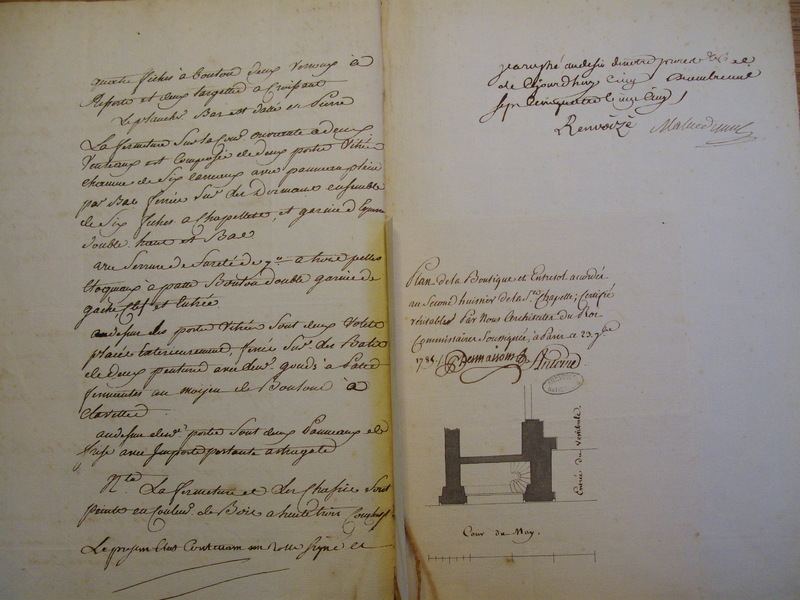 quatre fiches à bouton deux verroux à
Ressorts et deux targettes a Croissant
Le plancher Bas est dallé en Pierre
La fermeture Sur la Cour ouvrante a deux
Venteaux est Composée de deux porte Vitrée
chacune de Six carreaux avec panneau plein
par Bas ferrée Sur des Dormant ensemble
de Six fiches a Chapellets, et garnie d'Equerre
double haut et Bas
une Serrure de Sureté de 7 a trois pelles
a patte Bouton double garnie de
gache Clef et Entrée
audessus des porte Vitrée Sont deux Volets
placée Exterieurement, ferrée Sur des Battes
de deux penture avec leurs gonds à Patte
fermantes au moyen de Boutons à
Clavettes
audessus desd. porte Sont deux Panneaux de
frise avec Imposte portante astragale
Nta La fermeture et Les Chassis Sont
peints en Couleur de Bois a huile trois Couches
Le present Etat Contenant un Rolle Signé et
paraphé au desir de notre procès &c de
de cejourdhuy cinq Novembre mil
Sept Cent quatre vingt Cinq
Renvoizé
Plan de la Boutique et Entresol accordée
au Second huissier de la Ste Chapelle; Certifié
veritables Par Nous Architectes du Roi
Commissaires Soussignés, à Paris ce 23 9bre
1785. Desmaisons Antoine
Entrée du Vestibule
Cour du May.